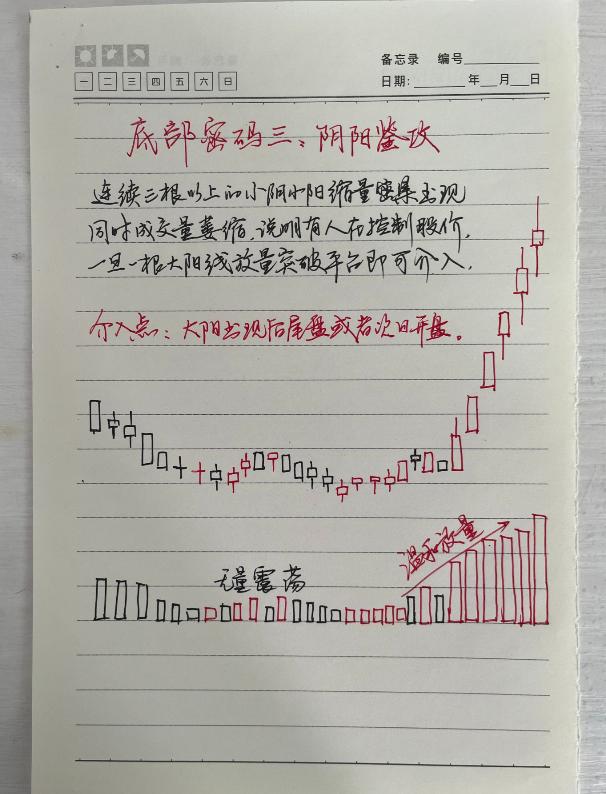 备忘录 编号
一 二 三 四 五 六 日
日期: 年 月 日
底部密码三：阴阳鉴攻
连续三根以上的小阴小阳缩量密集出现
同时成交量萎缩，说明有人在控制股价，
一旦一根大阳线放量突破平台即可介入，
介入点：大阳出现后尾盘或者次日开盘。
无量震荡
温和放量